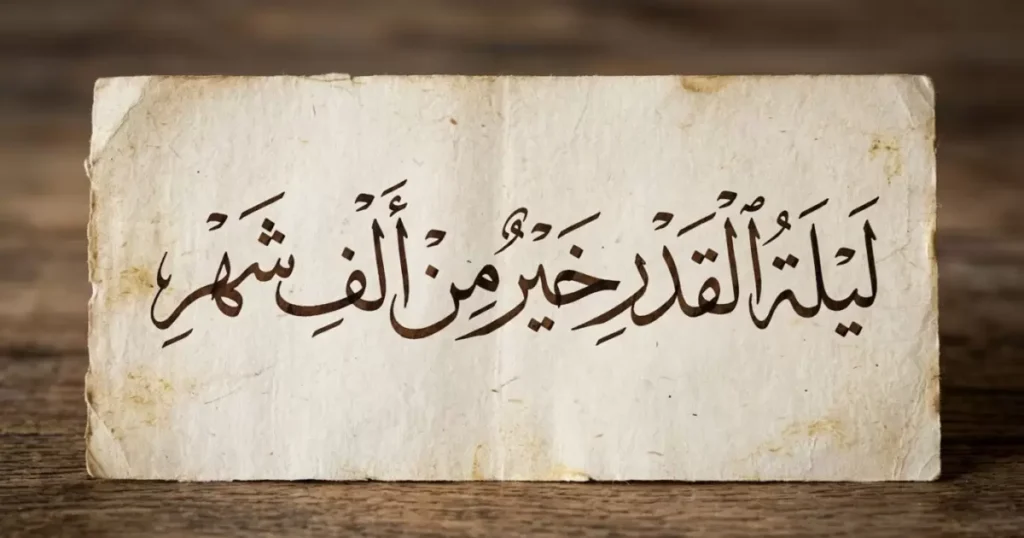 لَيْلَةُ ٱلْقَدْرِ خَيْرٌ مِنْ أَلْفِ شَهْرِ